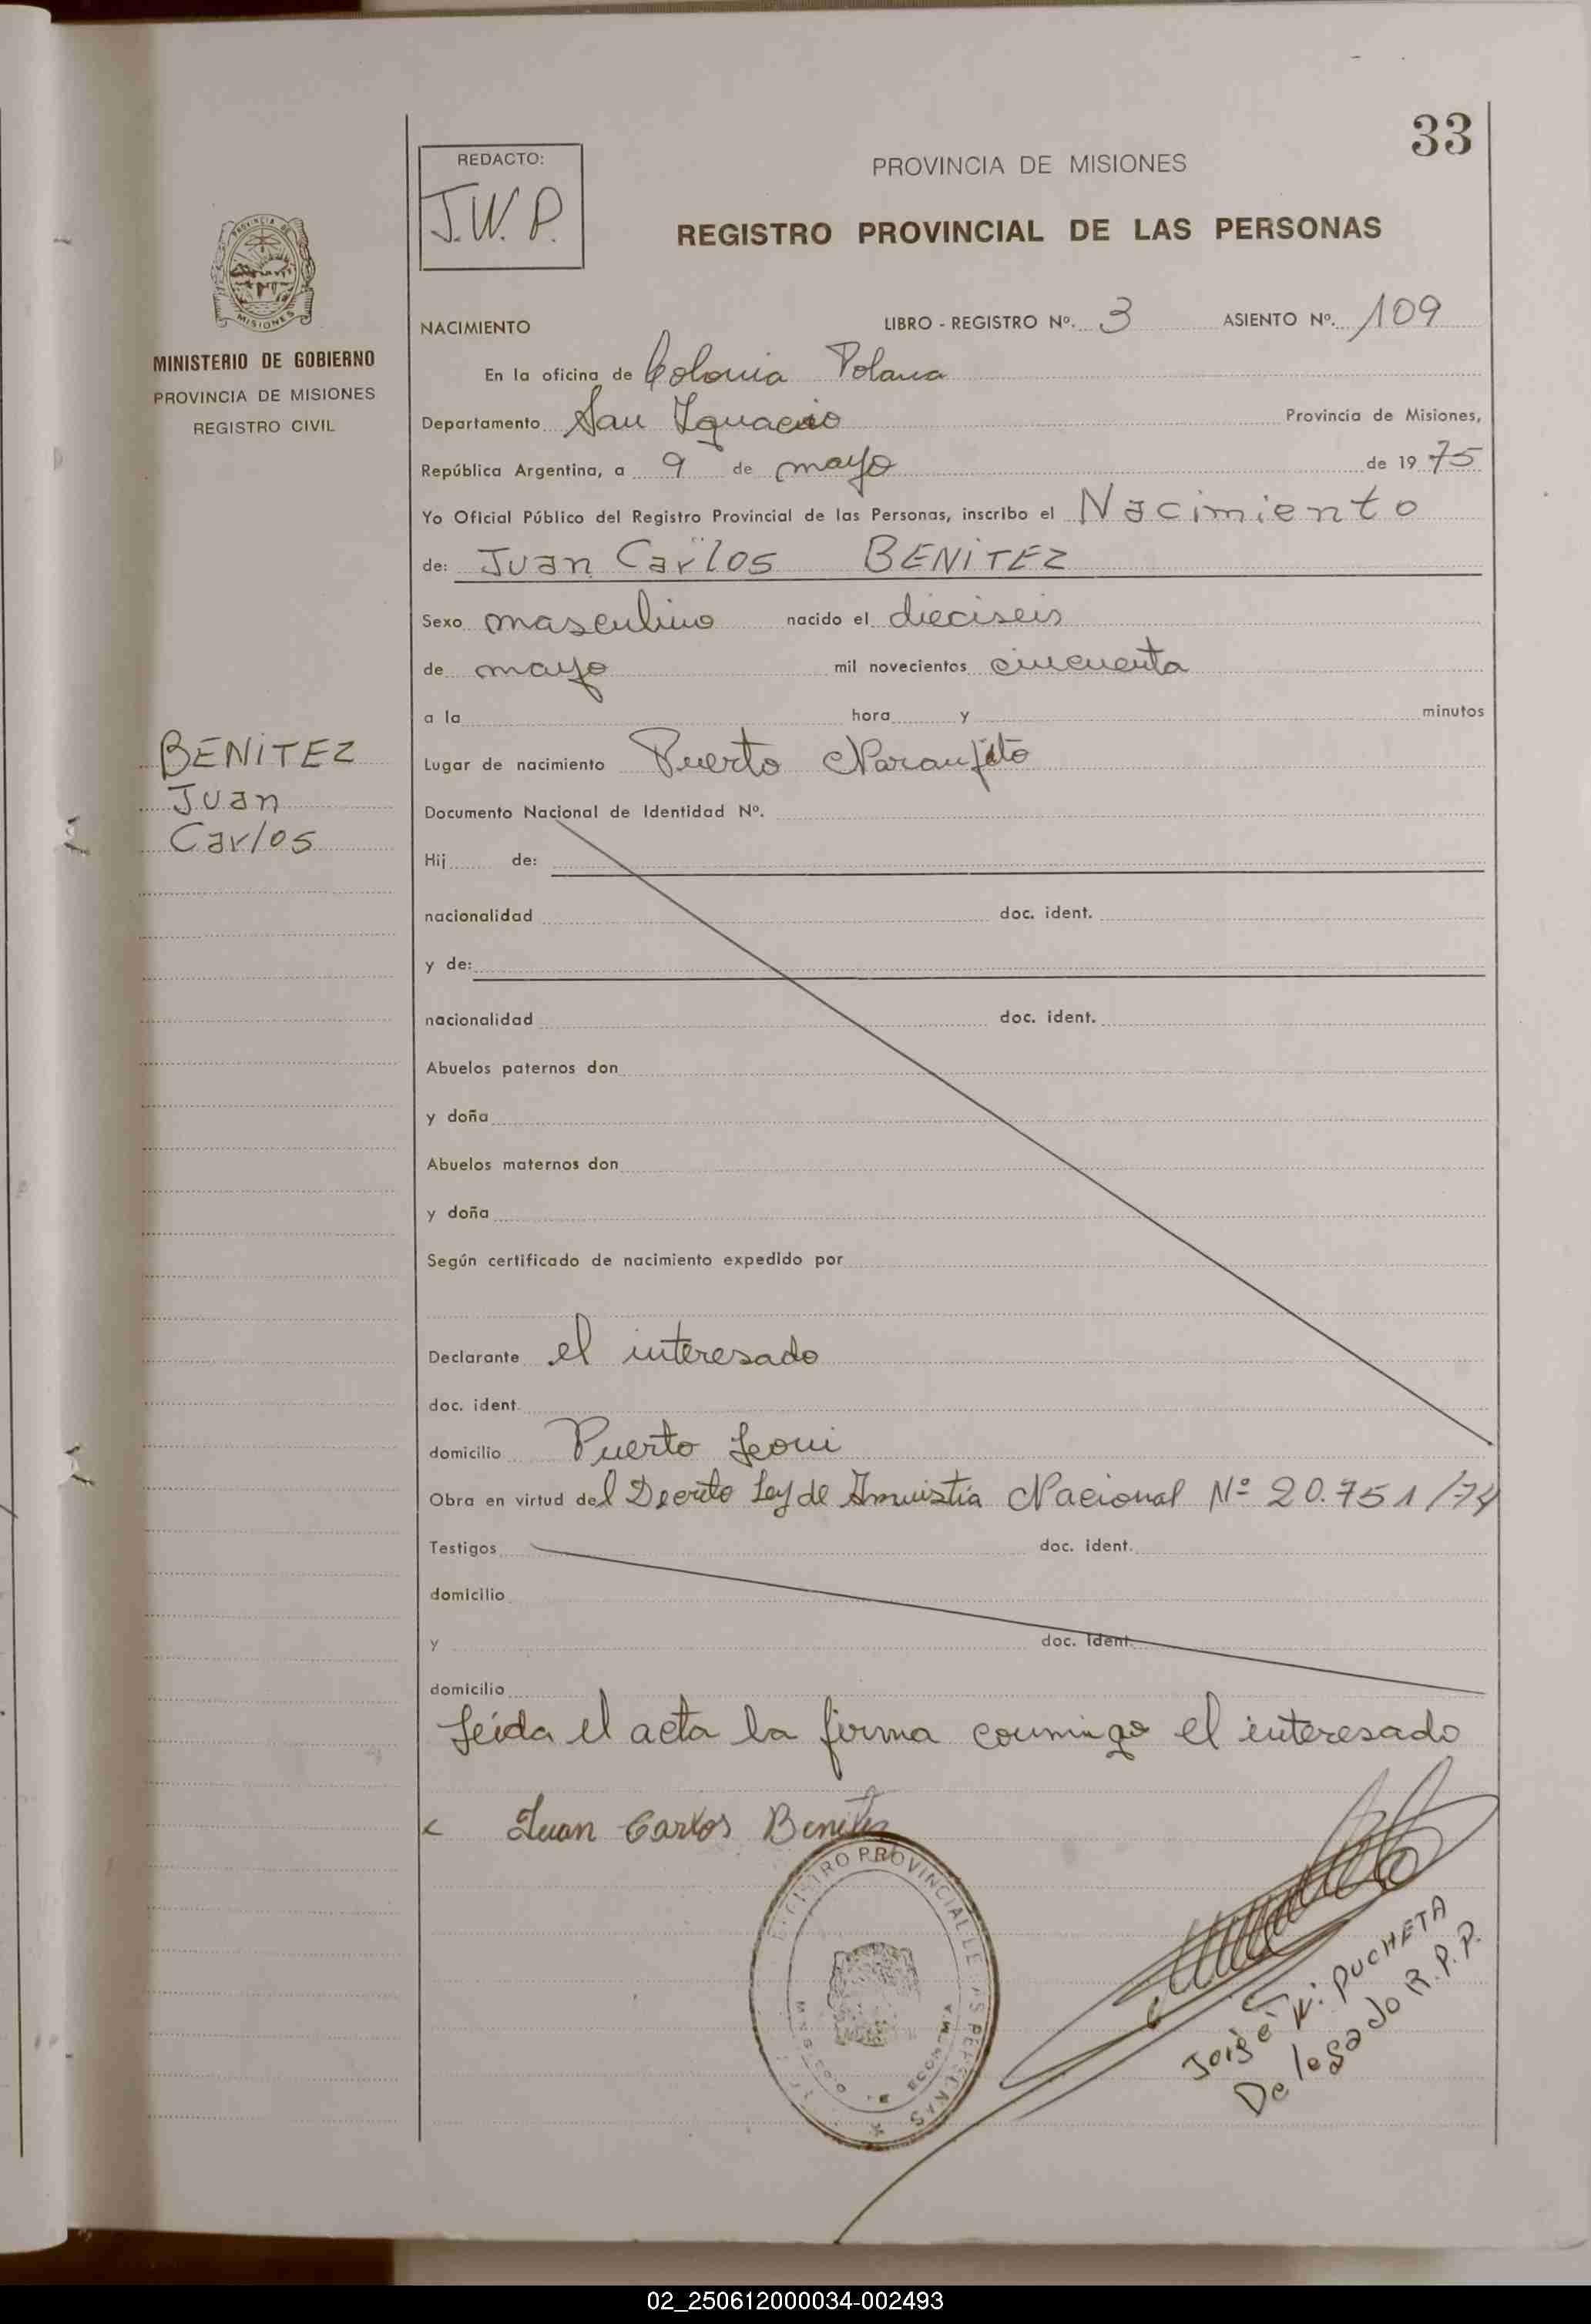 33
REDACTO:
J.W.P.
PROVINCIA DE MISIONES
REGISTRO PROVINCIAL DE LAS PERSONAS
PROVINCIA DE
MISIONES
MINISTERIO DE GOBIERNO
PROVINCIA DE MISIONES
REGISTRO CIVIL
NACIMIENTO LIBRO - REGISTRO Nº. 3 ASIENTO Nº. 109
En la oficina de Colonia Polana
Departamento San Ignacio Provincia de Misiones,
República Argentina, a 9 de mayo de 19 75
Yo Oficial Público del Registro Provincial de las Personas, inscribo el Nacimiento
de: Juan Carlos BENITEZ
Sexo masculino nacido el dieciseis
de mayo mil novecientos cincuenta
a la hora y minutos
BENITEZ
Juan
Carlos
Lugar de nacimiento Puerto Naranjito
Documento Nacional de Identidad Nº.
Hij de:
nacionalidad doc. ident.
y de:
nacionalidad doc. ident.
Abuelos paternos don
y doña
Abuelos maternos don
y doña
Según certificado de nacimiento expedido por
Declarante el interesado
doc. ident.
domicilio Puerto Leoni
Obra en virtud del Decreto Ley de Amnistía Nacional Nº 20.751/74
Testigos doc. ident.
domicilio
y doc. ident.
domicilio
Leída el acta la firma conmigo el interesado
Juan Carlos Benitez
REGISTRO PROVINCIAL DE LAS PERSONAS
Jorge W. PUCHETA
Delegado R.P.P.
02_250612000034-002493